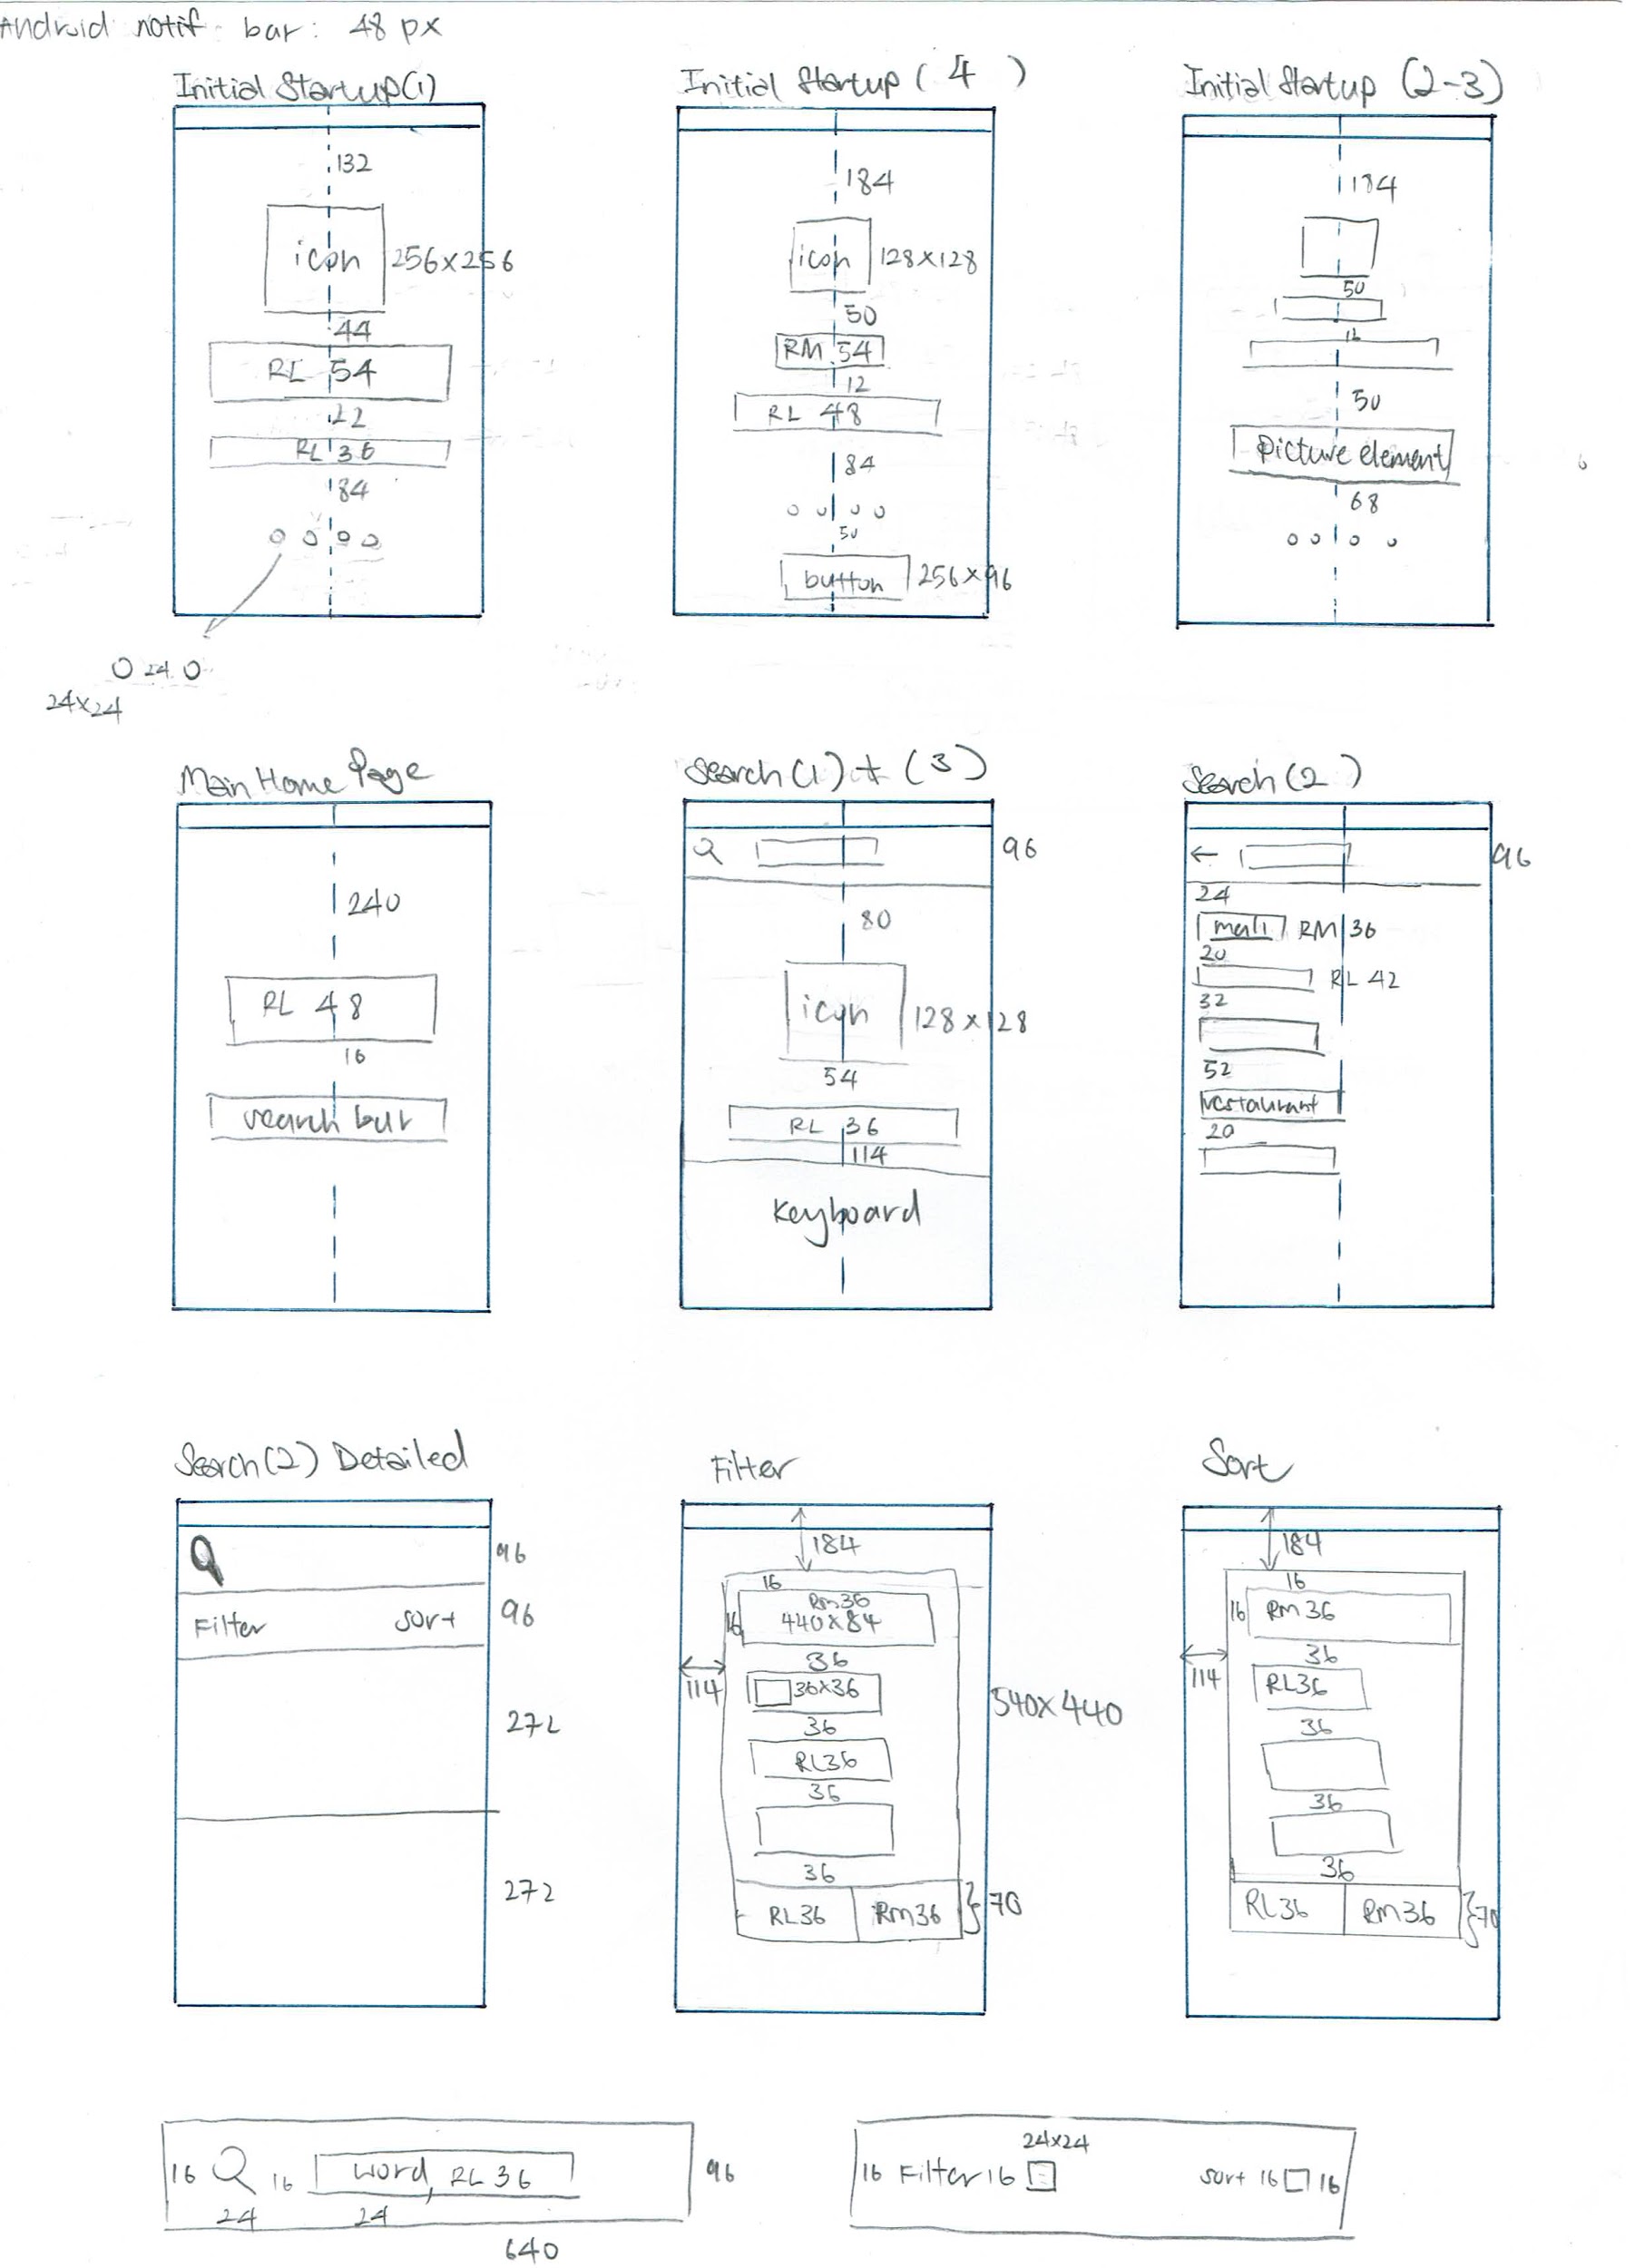 Android notif. bar: 48 px
Initial Startup(1)
132
icon 256×256
44
RL 54
22
RL 36
84
24
24×24
Initial Startup (4)
184
icon 128×128
50
RM 54
12
RL 48
84
50
button 256×96
Initial Startup (2-3)
184
50
12
50
picture element
68
Main Home Page
240
RL 48
16
search bar
Search(1) + (3)
96
80
icon 128×128
54
RL 36
114
Keyboard
Search(2)
96
24
mall RM 36
20
RL 42
32
52
restaurant
20
Search(2) Detailed
96
Filter sort 96
272
272
Filter
184
16
Rm36
16 440×84
36
114
36×36
540×440
36
RL36
36
36
RL36 Rm36 70
Sort
184
16
16 Rm36
36
114
RL36
36
36
36
RL36 Rm36 70
16 16 word, RL 36 96
24 24
640
24×24
16 Filter 16 sort 16 16